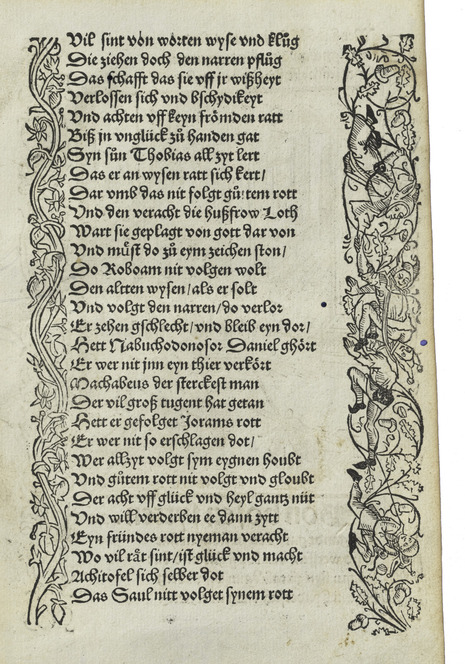 Vil sint von worten wyse vnd klůg
Die ziehen doch den narren pflůg
Das schafft das sie vff jr wißheyt
Verlossen sich vnd bschydikeyt
Vnd achten vff keyn frömden ratt
Biß jn vnglück zů handen gat
Syn sůn Thobias all zyt lert
Das er an wysen ratt sich kert/
Dar vmb das nit folgt gůtem rott
Vnd den veracht die hußfrow Loth
Wart sie geplagt von gott dar von
Vnd můst do zů eym zeichen ston/
Do Roboam nit volgen wolt
Den altten wysen/als er solt
Vnd volgt den narren/do verlor
Er zehen gschlecht/vnd bleib eyn dor/
Hett Nabuchodonosor Daniel ghört
Er wer nit jnn eyn thier verkört
Machabeus der sterckest man
Der vil groß tugent hat getan
Hett er gefolget Jorams rott
Er wer nit so erschlagen dot/
Wer allzyt volgt sym eygnen houbt
Vnd gůtem rott nit volgt vnd gloubt
Der acht vff glück vnd heyl gantz nüt
Vnd will verderben ee dann zytt
Eyn fründes rott nyeman veracht
Wo vil rät sint/ist glück vnd macht
Achitofel sich selber dot
Das Saul nitt volget synem rott